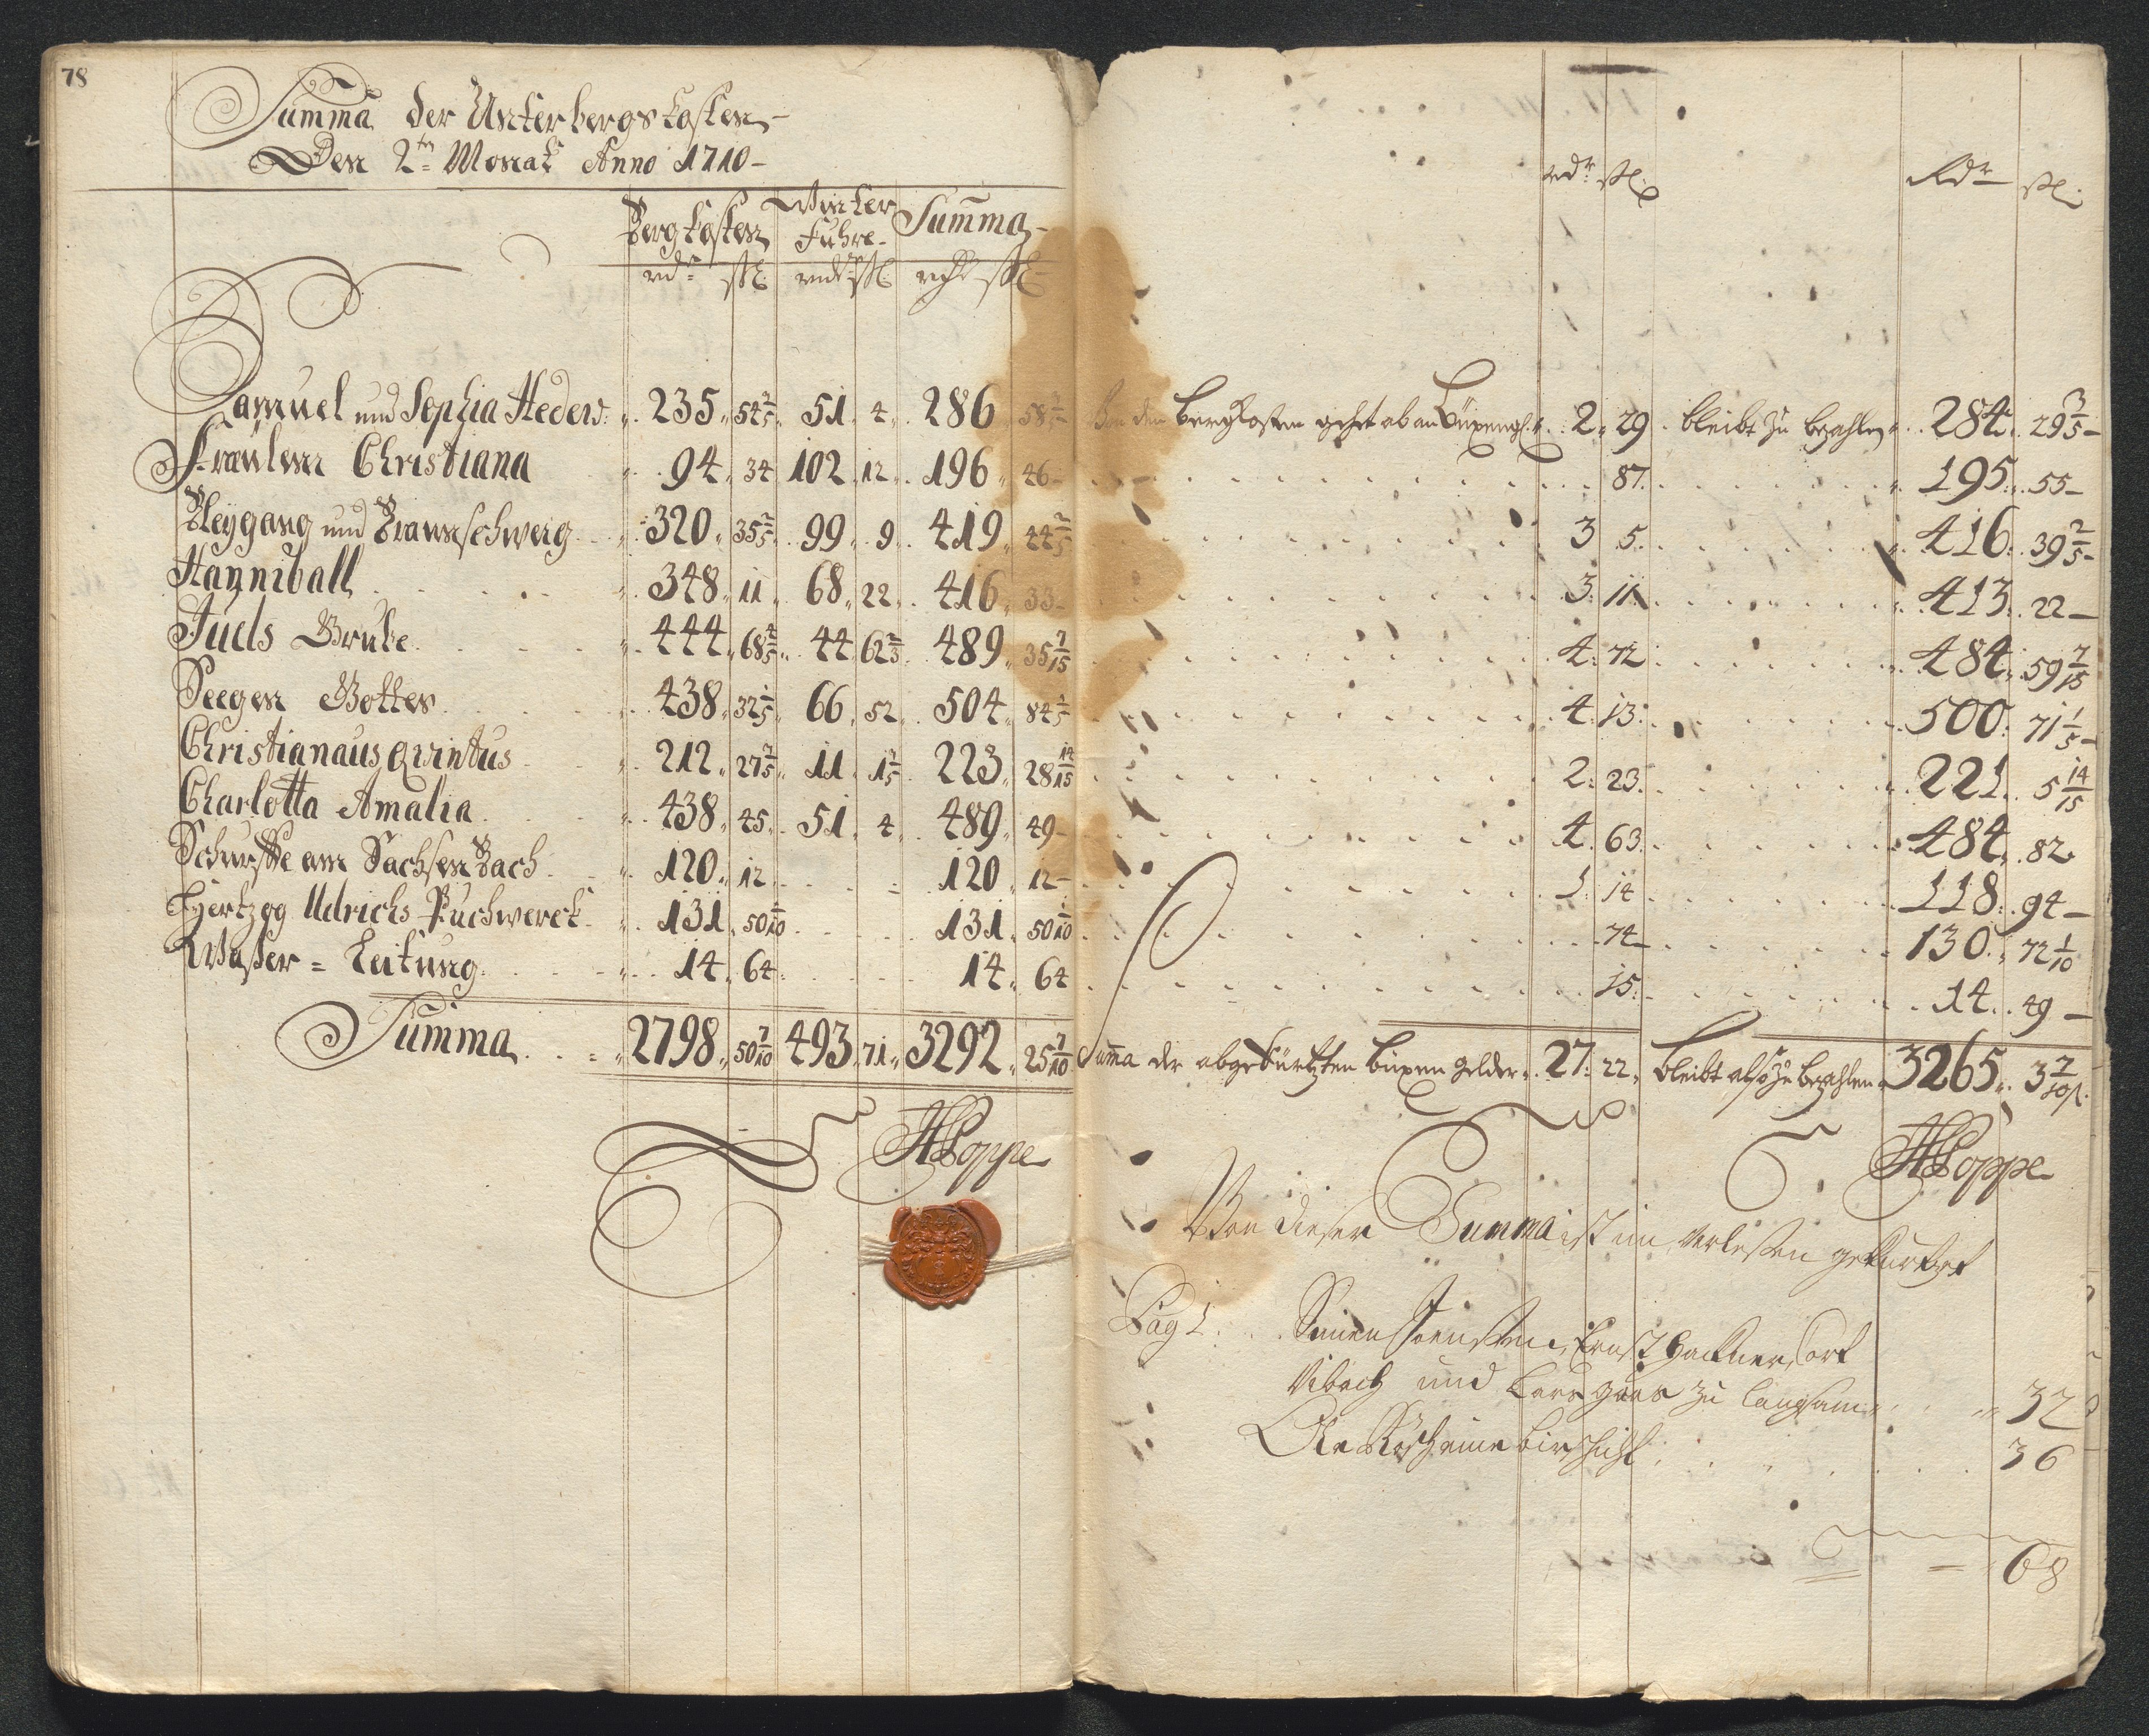 78
Summa der Unterbergs Kosten
Den 2ten Monat Anno 1710
Bergkosten Winter Fuhre Summa
rdr ßl. rdr ßl. rdr ßl.
Samuel und Sophia Hedew: 235 54 2/5 51 4 286 58 2/5
Fräulein Christiana 94 34 102 12 196 46
Bleygang und Braunschweig 320 35 2/5 99 9 419 44 2/5
Hanniball 348 11 68 22 416 33
Juels Grube 444 68 4/5 44 62 2/3 489 35 7/15
Seegen Gottes 438 32 1/5 66 52 504 84 1/5
Christianus Quintus 212 27 3/5 11 1 1/3 223 28 14/15
Charlotta Amalia 438 45 51 4 489 49
Schurffe am Sachsen Bach 120 12 120 12
Hertzog Uldrichs Puchwerck 131 50 1/10 131 50 1/10
Waßer = Leitung 14 64 14 64
Summa 2798 50 7/10 493 71 3292 25 7/10
HPoppe
rdr ßl. Rdr ßl.
Von den Bergkosten gehet ab an Büxengl. 2 29 bleibt zu bezahlen 284 29 3/5
87 195 55
3 5 416 39 2/5
3 11 413 22
4 72 484 59 7/15
4 13 500 71 1/5
2 23 221 5 14/15
4 63 484 82
1 14 118 94
74 130 72 1/10
15 14 49
Summa der abgekürtzten Büxen gelder 27 22 bleibt also zu bezahlen 3265 3 7/10 ß.
HPoppe
Von dieser Summa ist im verlesen gekürtzet
Pag 1. Simen Ernst Hackner,
und Lars zu langsam 32
Ole eine 36
68